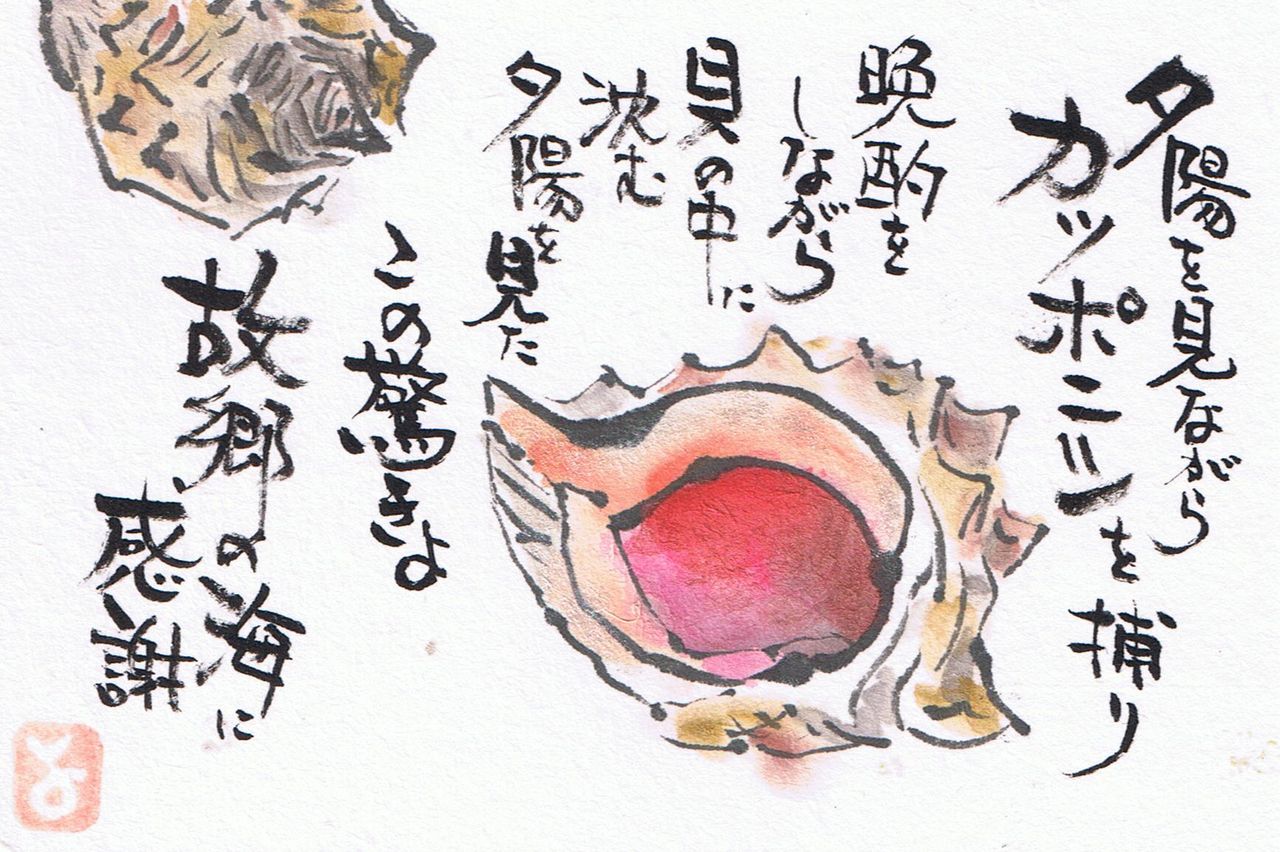 夕陽を見ながら
カッポニンを捕り
晩酌を
しながら
貝の中に
沈む
夕陽を
見た
この驚きよ
故郷の海に
感謝